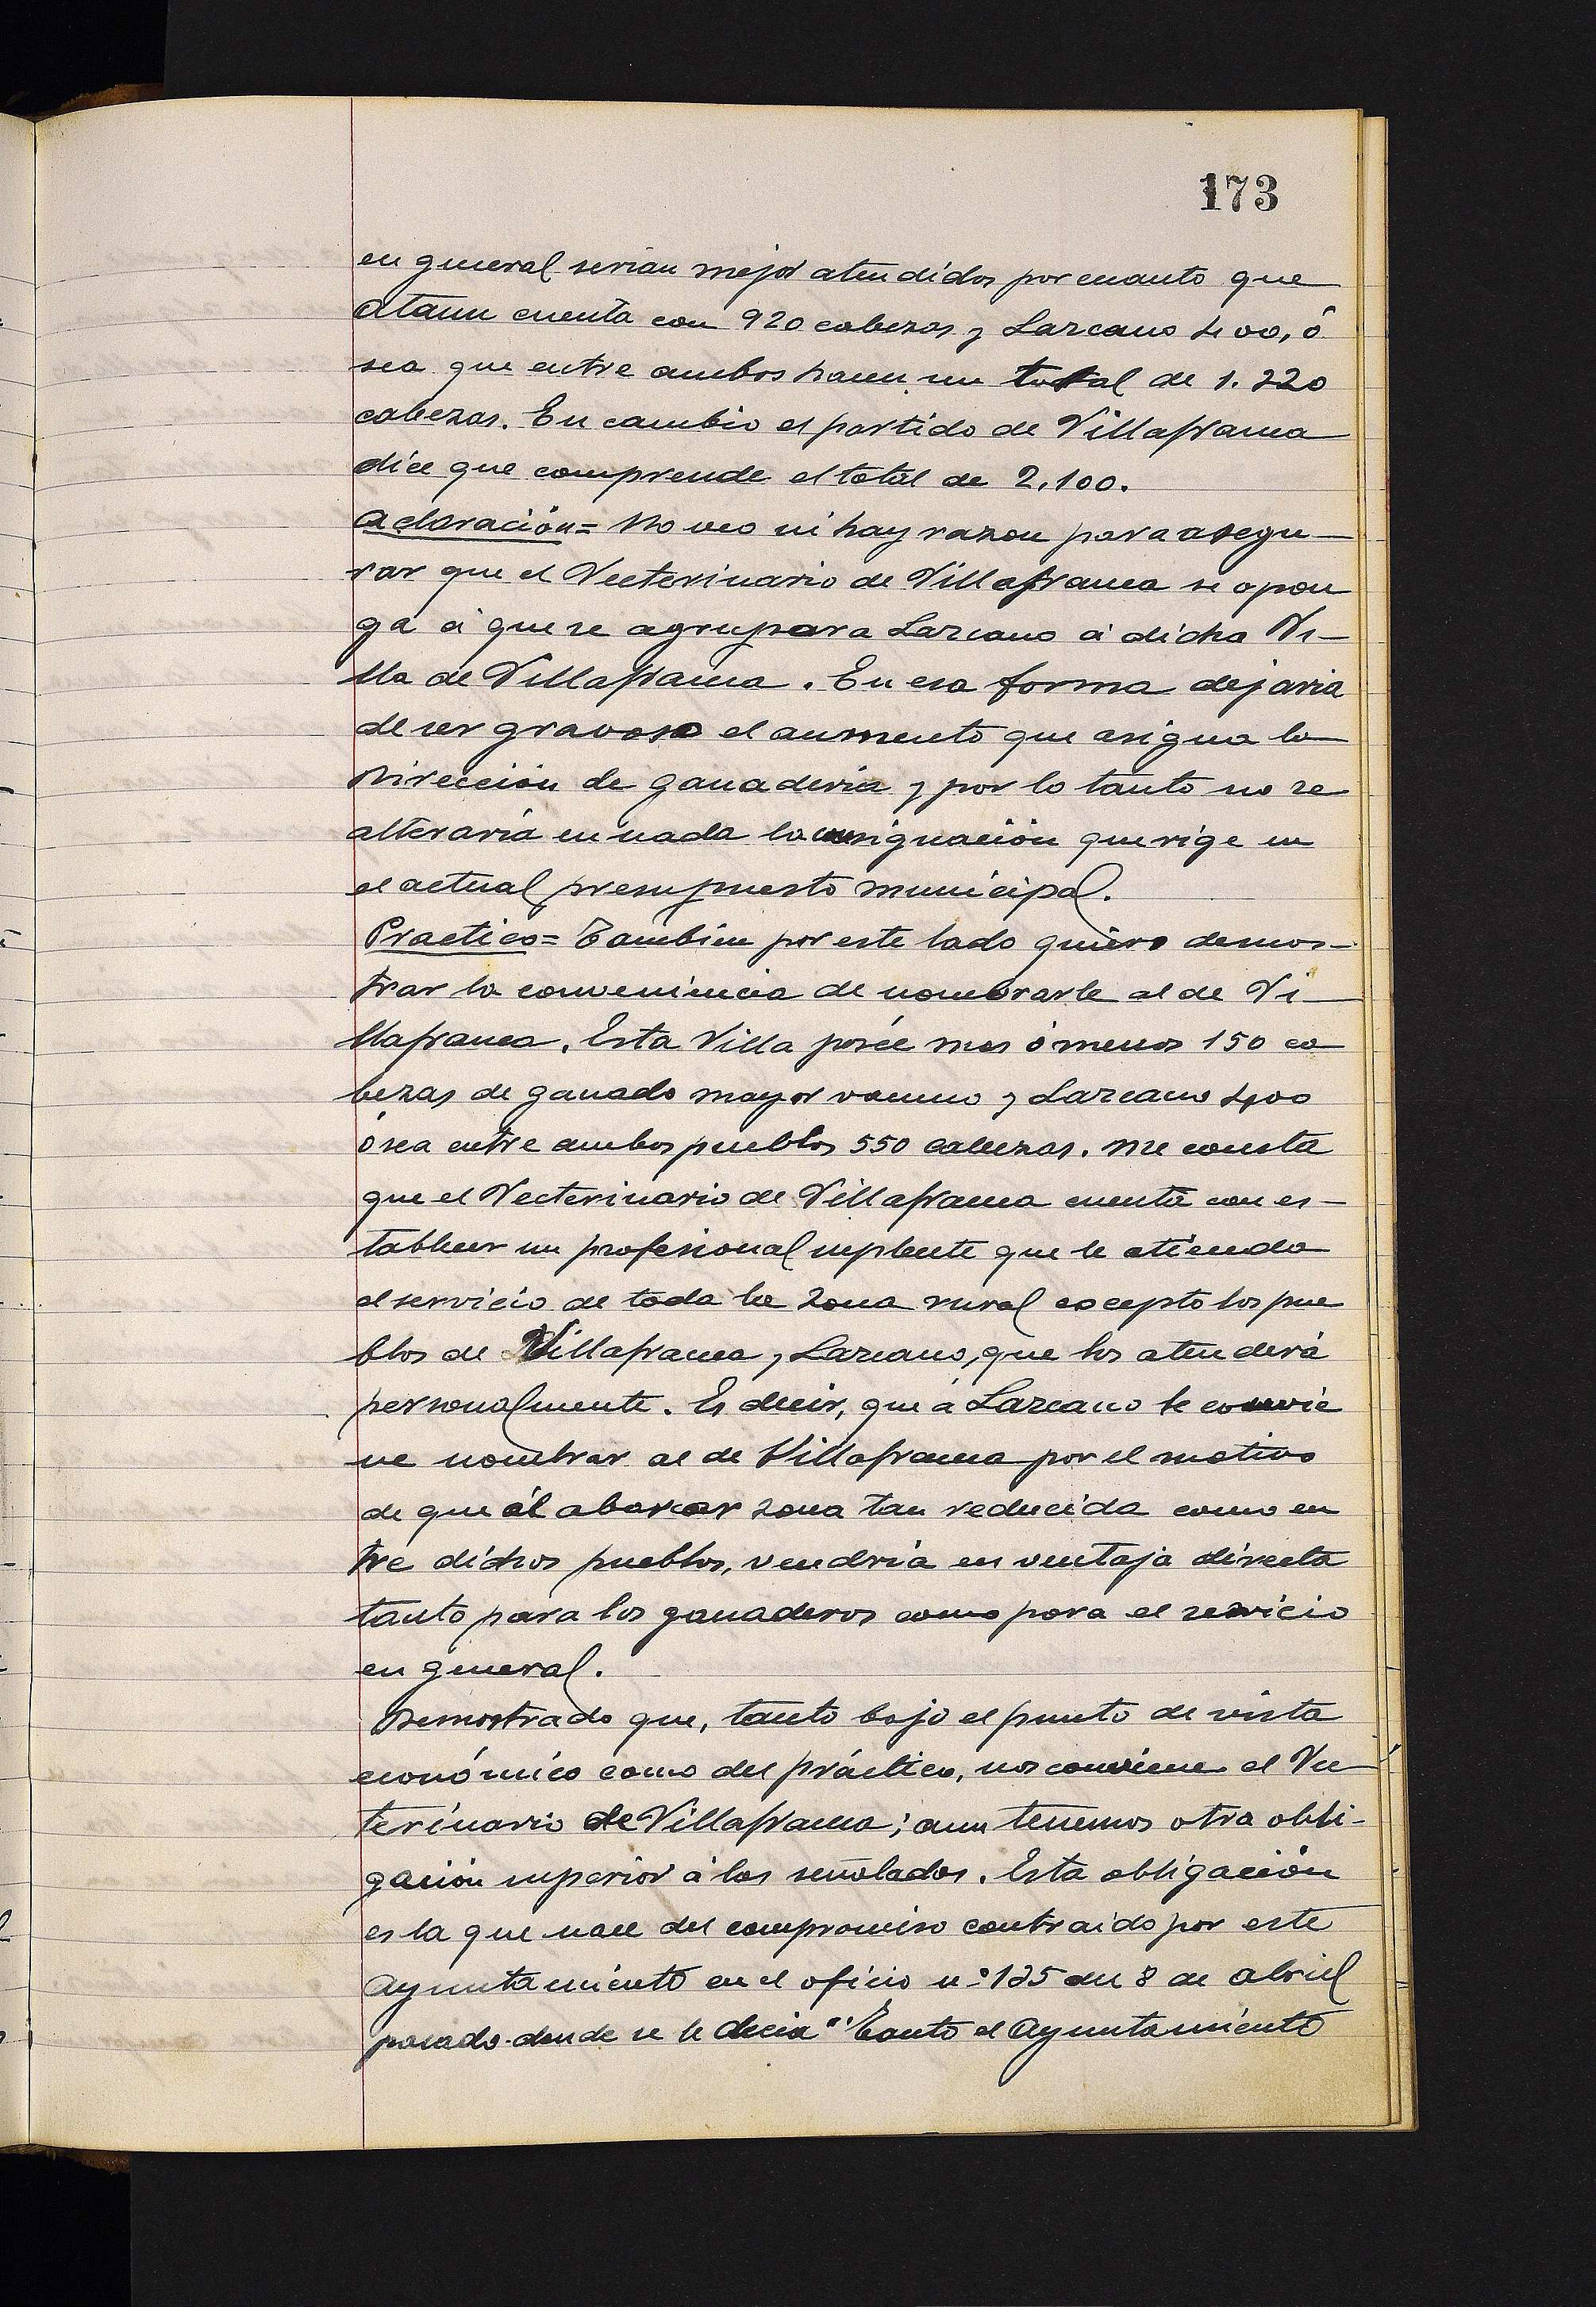 173
en general serian mejor atendidos por cuanto que
Ataun cuenta con 920 cabezas y Lazcano 400, ó
sea que entre ambos hacen un total de 1.320
cabezas. En cambio el partido de Villafranca
dice que comprende el total de 2.100.
Aclaración = No veo ni hay razon para asegu-
rar que el Vecterinario de Villafranca se opon
ga á que se agrupara Lazcano á dicha Vi-
lla de Villafranca. En esa forma dejaria
de ser gravoso el aumento que asigna la
Dirección de ganaderia y por lo tanto no se
alteraría en nada la consignación que rige en
el actual presupuesto municipal.
Practico = Tambien por este lado quiero demos-
trar la conveniencia de nombrarle al de Vi-
llafranca. Esta Villa posée mas ó menos 150 ca
bezas de ganado mayor vacuno y Lazcano 400
ó sea entre ambos pueblos 550 cabezas. Me consta
que el Vecterinario de Villafranca cuenta con es-
tablecer un profesional suplente que le atienda
el servicio de toda la zona rural excepto los pue
blos de Villafranca y Lazcano, que los atenderá
personalmente. Es decir, que á Lazcano le convie
ne nombrar al de Villafranca por el motivo
de que al abarcar zona tan reducida como en
tre dichos pueblos, vendría en ventaja directa
tanto para los ganaderos como para el servicio
en general.
Demostrado que, tanto bajo el punto de vista
económico como del práctico, nos conviene el Vec
terinario de Villafranca; aun tenemos otra obli-
gación superior á las señaladas. Esta obligación
es la que nace del compromiso contraido por este
Ayuntamiento en el oficio nº 135 del 8 de abril
pasado donde se le decia "Tanto el Ayuntamiento